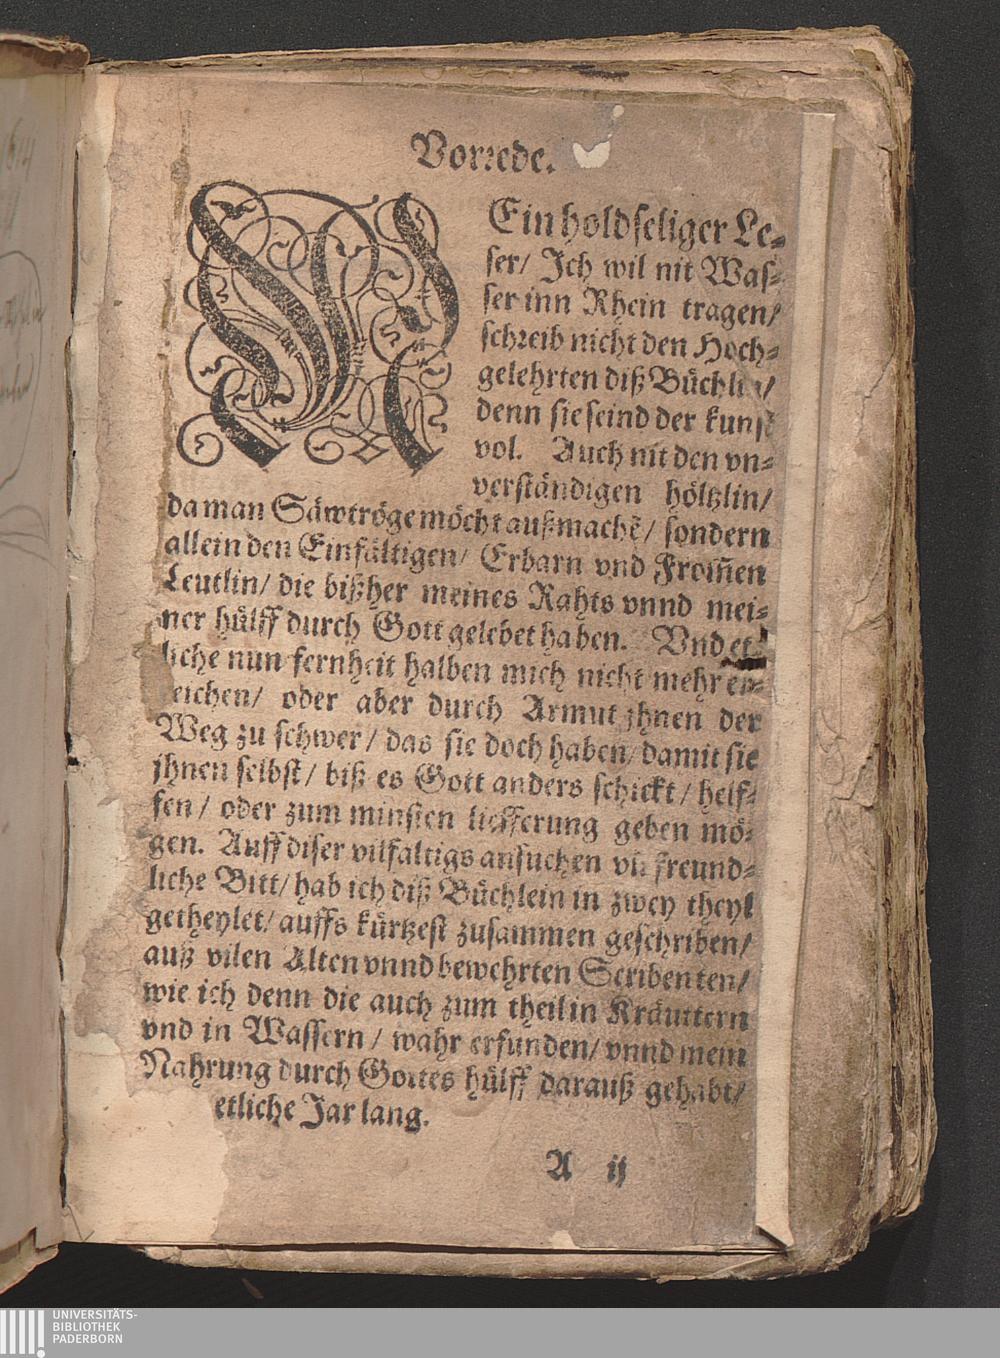 Vorrede.
MEin holdseliger Le-
ser/ Ich wil nit Was-
ser inn Rhein tragen/
schreib nicht den Hoch-
gelehrten diß Büchlin/
denn sie seind der kunst
vol. Auch nit den vn-
verständigen höltzlin/
da man Säwtröge möcht außmachẽ/ sondern
allein den Einfältigen/ Erbarn vnd From̃en
Leutlin/ die bißher meines Rahts vnnd mei-
ner hülff durch Gott gelebet haben. Vnd et-
liche nun fernheit halben mich nicht mehr er-
reichen/ oder aber durch Armut jhnen der
Weg zu schwer/ das sie doch haben/ damit sie
jhnen selbst/ biß es Gott anders schickt/ helf-
fen/ oder zum minsten liefferung geben mö-
gen. Auff diser vilfaltigs ansuchen vñ freund-
liche Bitt/ hab ich diß Büchlein in zwey theyl
getheylet/ auffs kürtzest zusammen geschriben/
auß vilen Alten vnnd bewehrten Scribenten/
wie ich denn die auch zum theil in Kräuttern
vnd in Wassern/ wahr erfunden/ vnnd mein
Nahrung durch Gottes hülff darauß gehabt/
etliche Jar lang.
A ij
UNIVERSITÄTS-
BIBLIOTHEK
PADERBORN